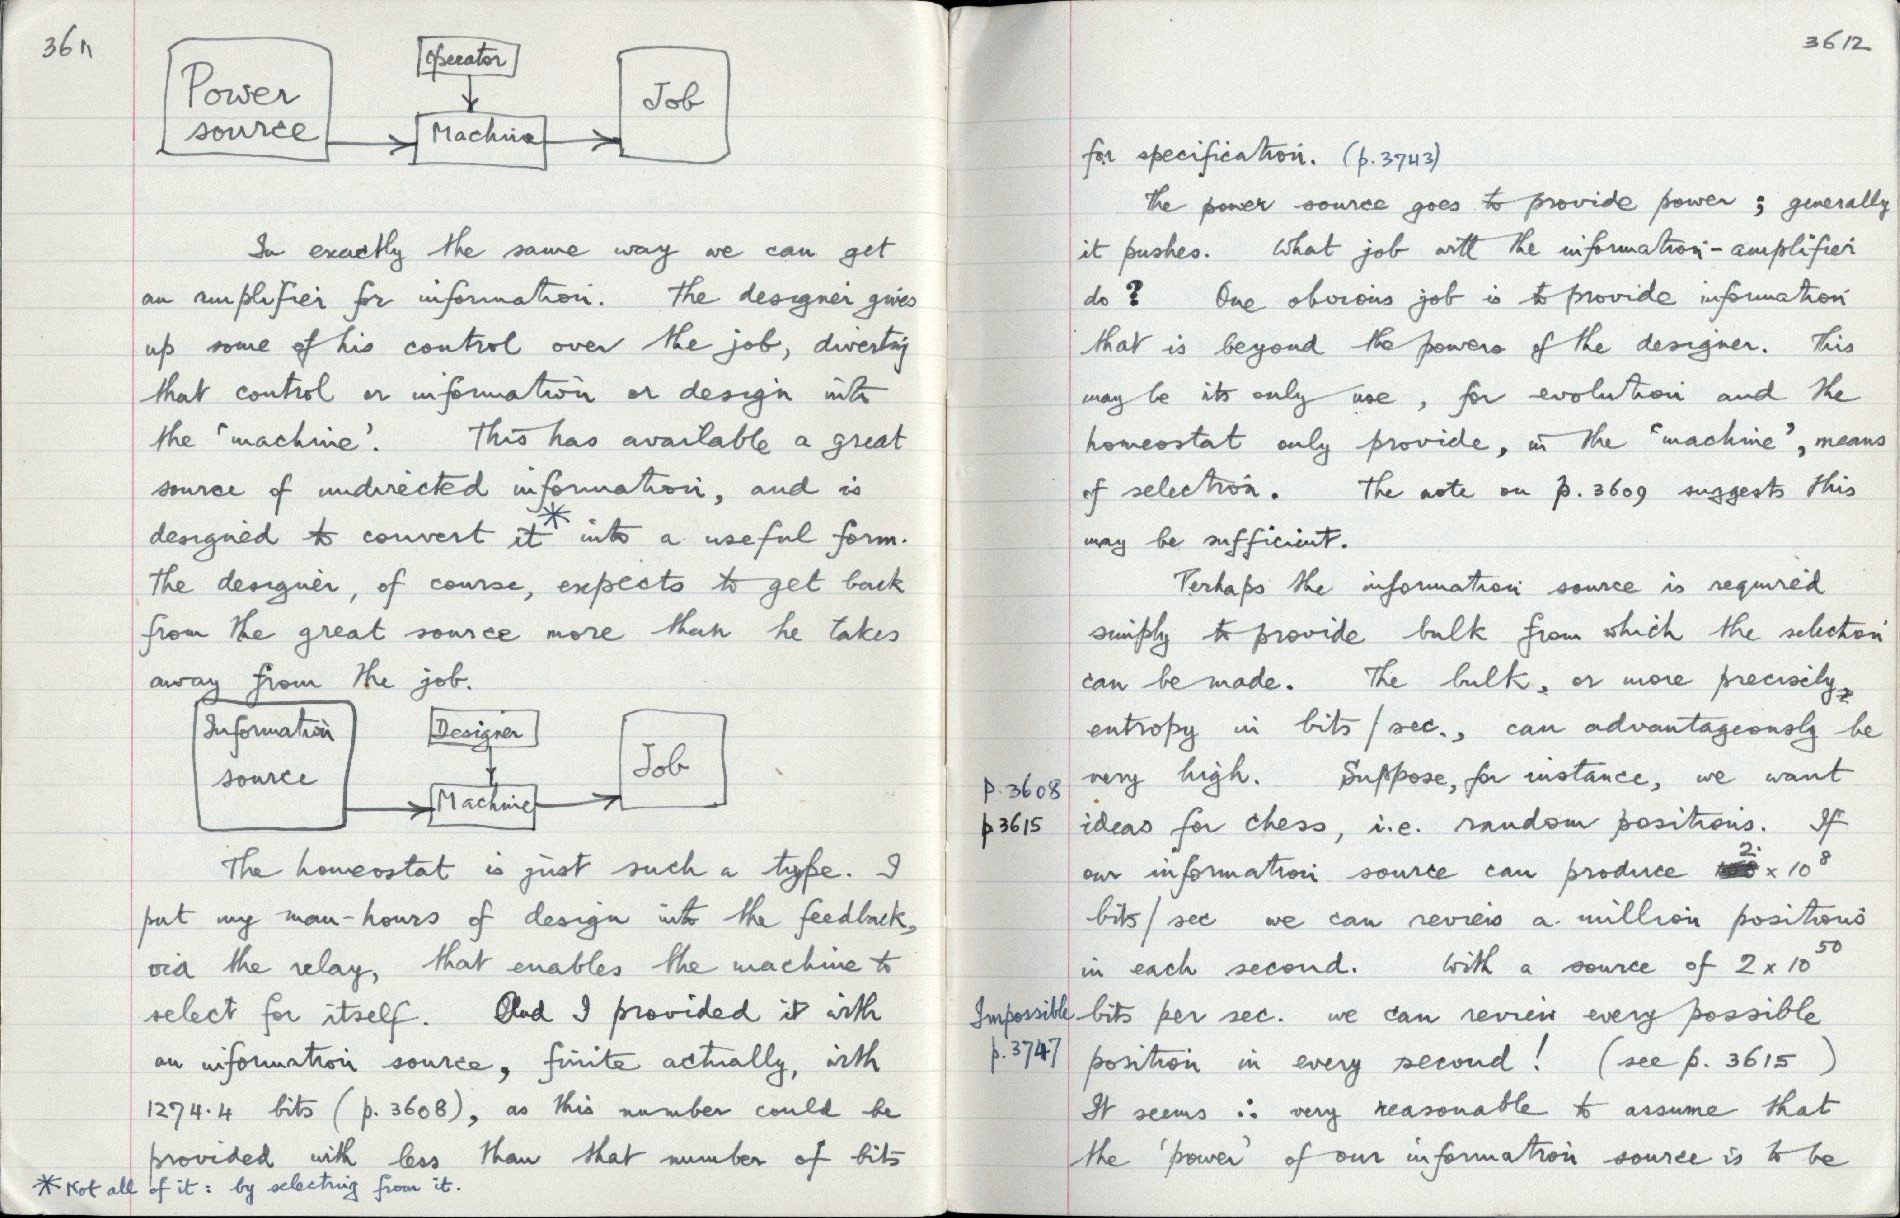 3611
Power
source
Operator
Machine
Job
In exactly the same way we can get
an amplifier for information. The designer gives
up some of his control over the job, diverting
that control or information or design into
the 'machine'. This has available a great
source of undirected information, and is
designed to convert it* into a useful form.
The designer, of course, expects to get back
from the great source more than he takes
away from the job.
Information
source
Designer
Machine
Job
The homeostat is just such a type. I
put my man-hours of design into the feedback,
via the relay, that enables the machine to
select for itself. And I provided it with
an information source, finite actually, with
1274.4 bits (p.3608), as this number could be
provided with less than that number of bits
* Not all of it: by selecting from it.
3612
for specification. (p.3743)
The power source goes to provide power; generally
it pushes. What job will the information-amplifier
do? One obvious job is to provide information
that is beyond the powers of the designer. This
may be its only use, for evolution and the
homeostat only provide, in the 'machine', means
of selection. The note on p.3609 suggests this
may be sufficient.
Perhaps the information source is required
simply to provide bulk from which the selection
can be made. The bulk, or more precisely,
entropy in bits/sec., can advantageously be
very high. Suppose, for instance, we want
p.3608
p3615
ideas for chess, i.e. random positions. If
our information source can produce 2 × 10⁸
bits/sec we can review a million positions
in each second. With a source of 2 × 10⁵⁰
Impossible
p.3747
bits per sec. we can review every possible
position in every second! (see p. 3615)
It seems ∴ very reasonable to assume that
the 'power' of our information source is to be